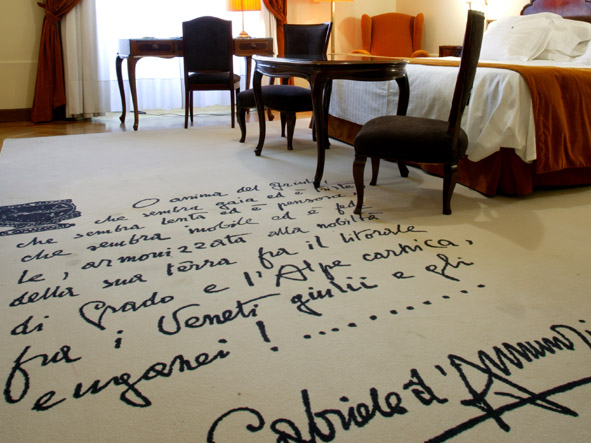 O anima del Friuli,
che sembra gaia ed è forte
che sembra lenta ed è pensosa,
che sembra mobile ed è fede
le, armonizzata alla nobiltà
della sua terra fra il litorale
di Grado e l'Alpe carnica,
fra i Veneti giulii e gli
euganei! ............
Gabriele d'Annunzi